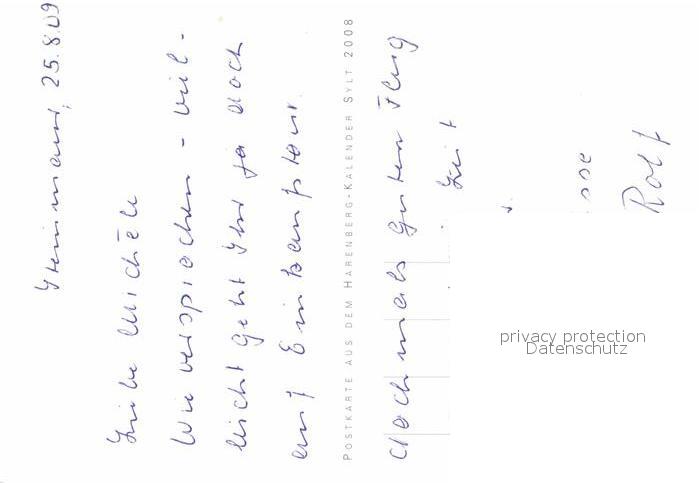 Steinmaur, 25.8.09
Liebe Michèle
Wie versprochen - viel-
leicht geht Ihr ja noch
auf Einkaufstour.
POSTKARTE AUS DEM HARENBERG-KALENDER SYLT 2008
Nochmals guten Flug
Rolf
privacy protection
Datenschutz